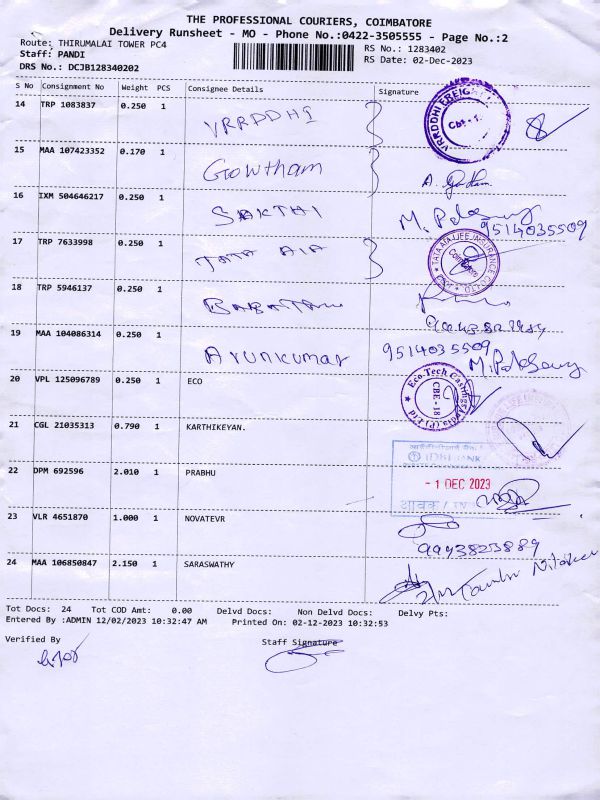 THE PROFESSIONAL COURIERS, COIMBATORE
Delivery Runsheet - MO - Phone No.:0422-3505555 - Page No.:2
Route: THIRUMALAI TOWER PC4 RS No.: 1283402
Staff: PANDI RS Date: 02-Dec-2023
DRS No.: DCJB128340202
S No Consignment No Weight PCS Consignee Details Signature
14 TRP 1083837 0.250 1 VRRDDHI
15 MAA 107423352 0.170 1 Gowtham
16 IXM 504646217 0.250 1 SAKTHI
9514035509
17 TRP 7633998 0.250 1 TATA AIA
18 TRP 5946137 0.250 1
19 MAA 104086314 0.250 1 Arunkumar 9514035509
20 VPL 125096789 0.250 1 ECO
Eco-Tech Castings
CBE - 18
21 CGL 21035313 0.790 1 KARTHIKEYAN.
IDBI BANK
22 DPM 692596 2.010 1 PRABHU
- 1 DEC 2023
23 VLR 4651870 1.000 1 NOVATEVR
9943823889
24 MAA 106850847 2.150 1 SARASWATHY
Tot Docs: 24 Tot COD Amt: 0.00 Delvd Docs: Non Delvd Docs: Delvy Pts:
Entered By :ADMIN 12/02/2023 10:32:47 AM Printed On: 02-12-2023 10:32:53
Verified By Staff Signature